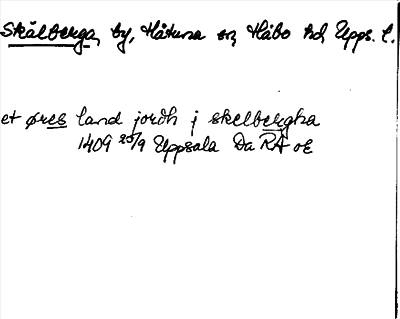 Skålberga, by, Håtuna sn, Håbo hd, Upps. l.
et øres land jordh j skelbergha
1409 25/9 Uppsala Da RA oE